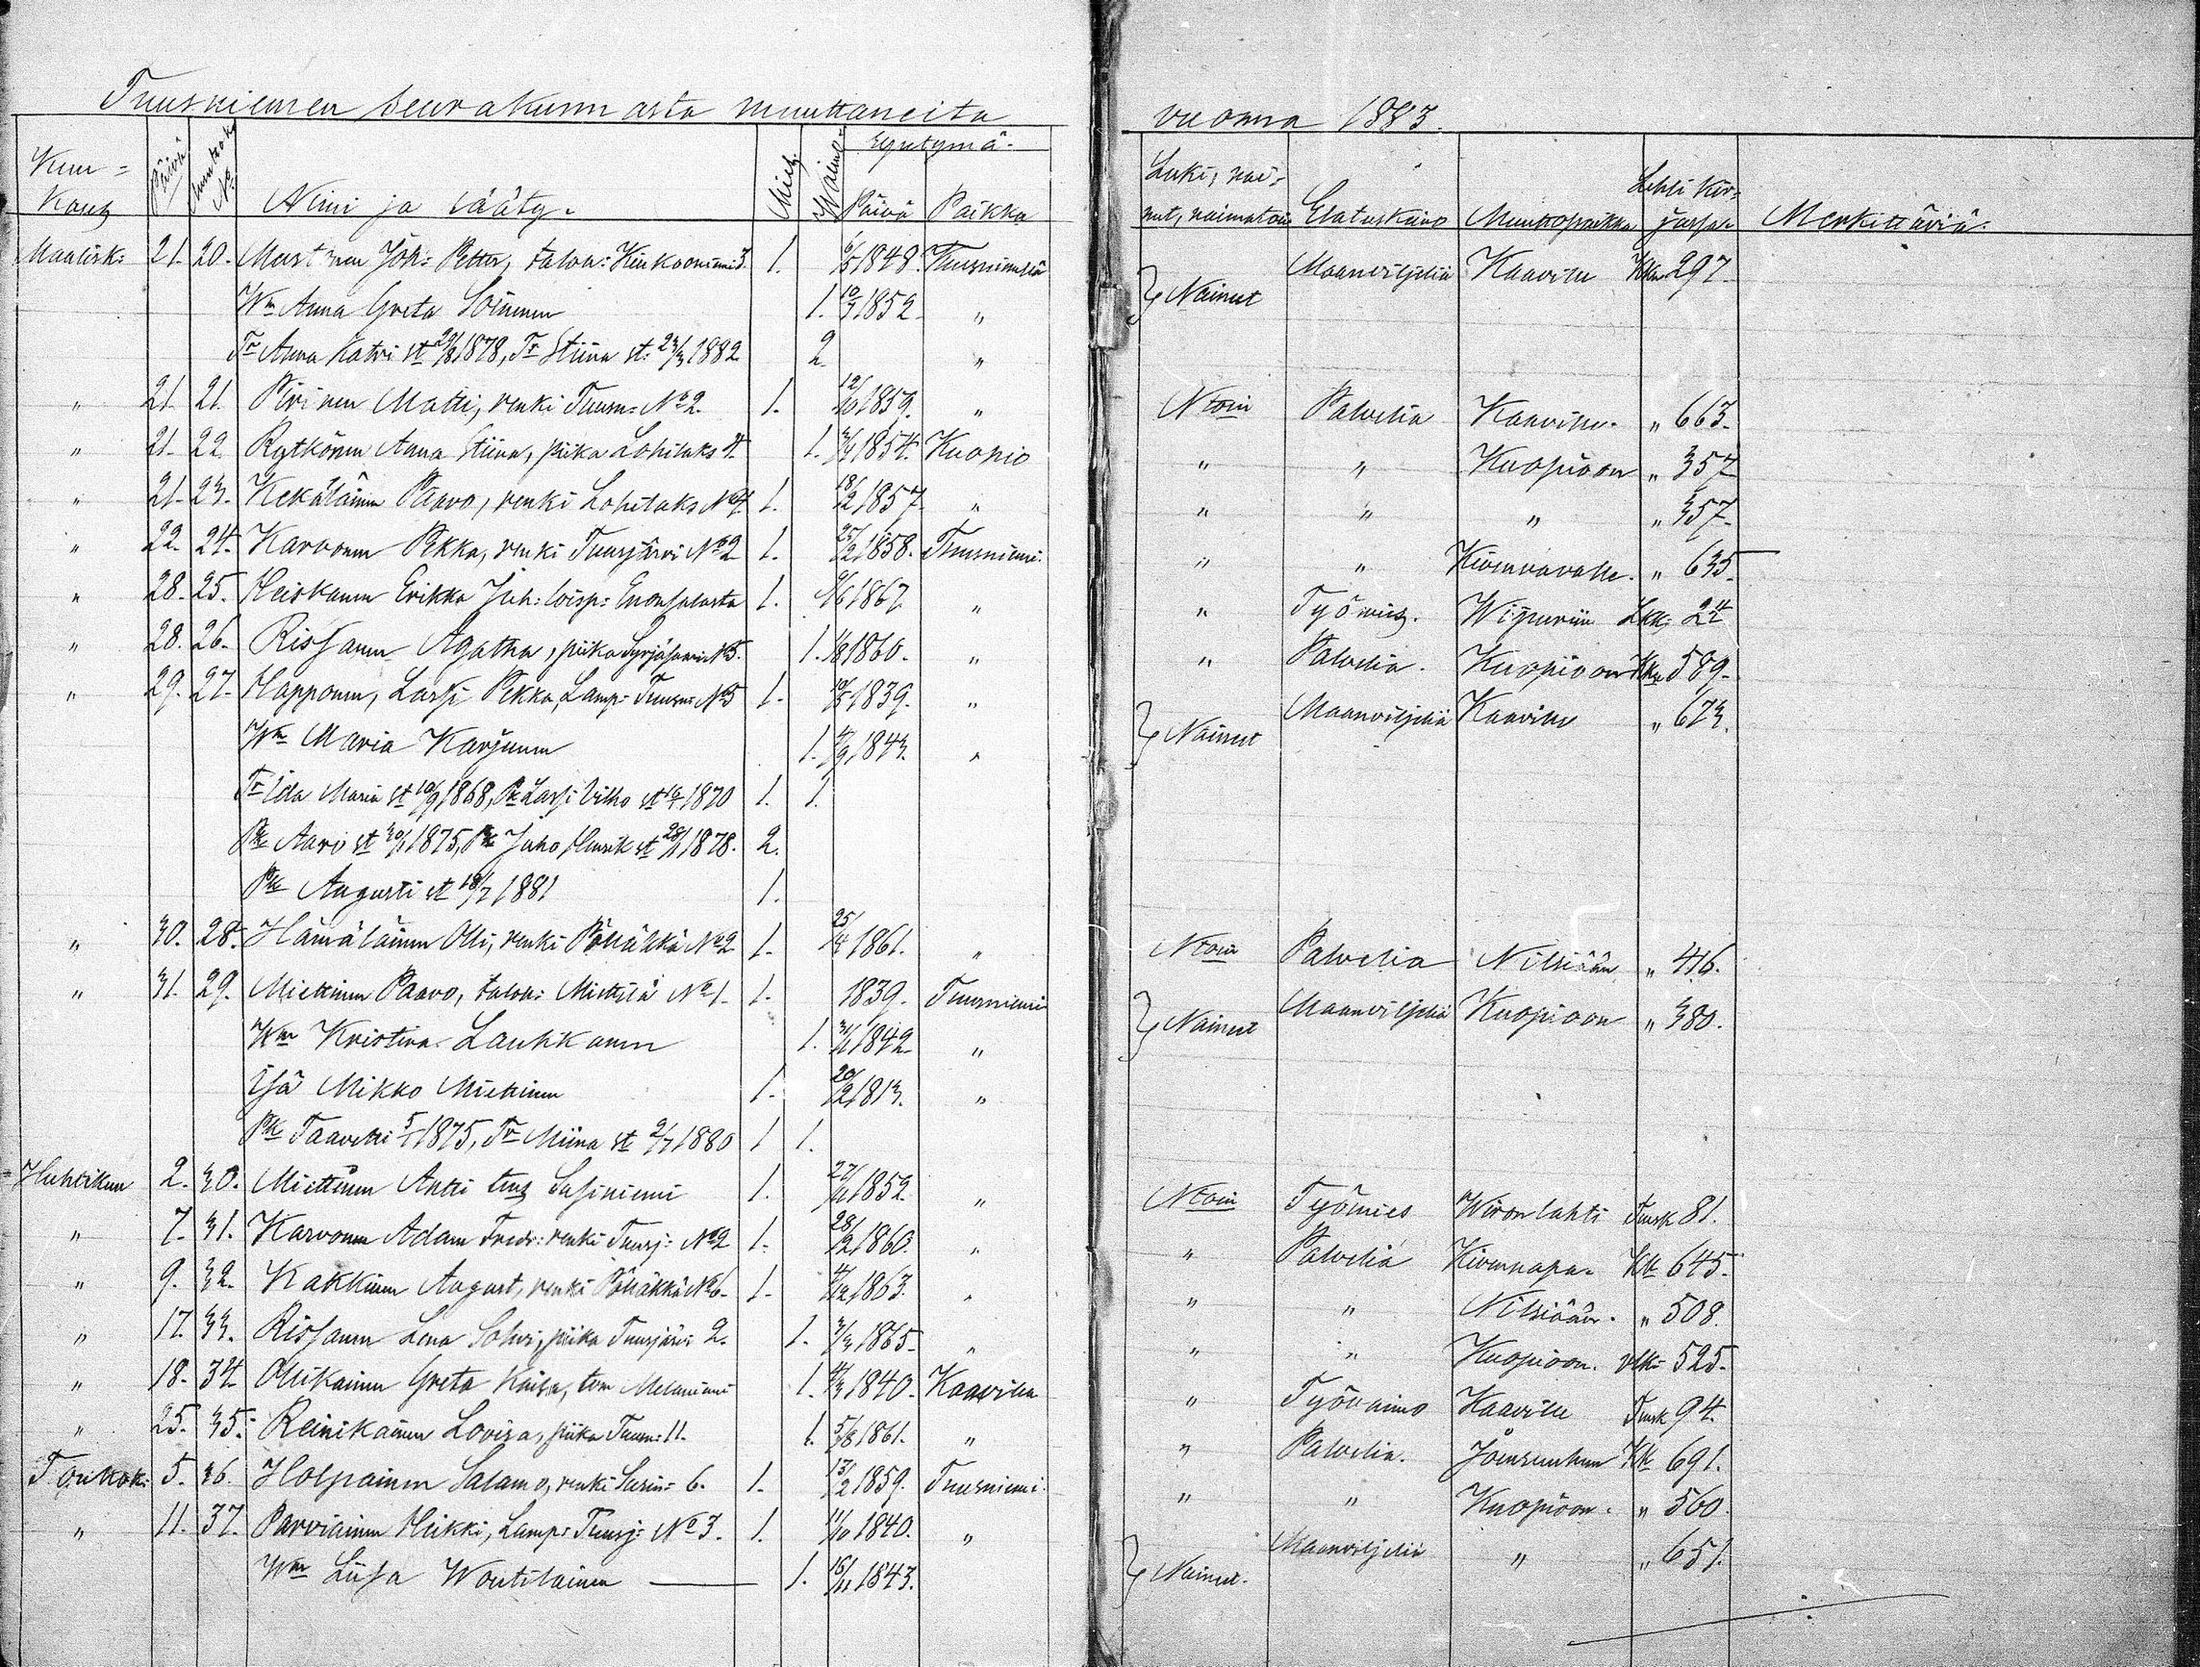 Tuusniemen seurakunnasta muuttaneita vuonna 1883.
Kuu= kausi Päivä Muuttok. No Nimi ja sääty. Miesp. Waimop. Syntymä- Päivä Paikka Luki, nai- nut, naimatoin Elatuskeino Muuttopaikka Lehti kir- jassa. Merkittäviä.
Maalisk: 21. 20. Mustonen Joh: Petter, talon: 1. 6/5 1848. Tuusniemellä } Nainut Maanviljeliä Kaaville Kk 297.
Wm Anna Greta Soininen 1. 10/7 1852 "
Tr Anna Katri st 1878, Tr Stiina st: 1882 2 "
" 21. 21. Pirinen Matti, renki Tuusn= No 2. 1. 12/10 1859. " Ntoin Palvelia Kaaville. " 663.
" 21. 22. Rytkönen Anna Stiina, piika Lohilaks 4. 1. 1854. Kuopio " " Kuopioon " 357
" 21. 23. Kekäläinen Paavo, renki Lohilaks No 4. 1. 18/2 1857 " " " " " 357.
" 22. 24. Karvonen Pekka, renki Tuusjärvi No 2 1. 27/2 1858. Tuusniemi. " " Kivennavalle. " 635.
" 28. 25. Heiskanen Erikki Juh: loisp: Enonsalosta 1. 1867 " " Työmies. Wiipuriin Lkk:
" 28. 26. Rissanen Agatha, piika Syrjäsaari No 5. 1. 1860. " " Palvelia. Kuopioon Kk 589.
" 29. 27. Happonen, Lassi Pekka, Lamp: Tuusn: No 5 1. 1839. " } Nainut Maanviljeliä Kaaville " 673.
Wm Maria Karjunen 1. 1843. "
Tr Ida Maria st 10/9 1868, Pk Lassi Vilho st 1870 1. 1.
Pk Aaro st 30/1 1875, Pk Juho Henrik st 1878. 2.
Pk Augusti st 18/7 1881 1.
" 30. 28. Hämäläinen Olli, renki Pölläkkä No 2 1. 25/4 1861. " Ntoin Palvelia Nilsiään " 416.
" 31. 29. Miettinen Paavo, talon: Miettilä No 1. 1. 1839. Tuusniemi } Nainut Maanviljeliä Kuopioon " 380.
Wm Kristina Laukkanen 1. 1842 "
Isä Mikko Miettinen 1. 20/2 1813. "
Pk Taavetti 5/1 1875, Tr Miina st 2/7 1880 1 1.
Huhtikuu 2. 30. Miettinen Antti Susiniemi 1. 1852. " Ntoin Työmies Wironlahti Tuusk 81.
" 7. 31. Karvonen Adam Fredr: renki Tuusj: No 2 1. 28/12 1860. " " Palvelia Kivennapa. Kk 645.
" 9. 32. Kakkinen August, renki Pölläkkä No 6. 1. 1863. " " " Nilsiään. " 508.
" 17. 33. Rissanen Lena Sohvi, piika Tuusjärvi 2. 1. 3/3 1865 " " " Kuopioon. 525.
" 18. 34. Ollikainen Greta Kaisa, Melaniemi 1. 1840. Kaavilla " Työvaimo Kaaville Tuusk 94.
" 25. 35. Reinikainen Lovisa, piika Tuusn: 11. 1. 5/8 1861. " " Palvelia. Joensuuhun Kk 691.
Toukok: 5. 36. Holpainen Salamo, renki Susin= 6. 1. 13/2 1859. Tuusniemi. " " Kuopioon. " 560.
" 11. 37. Parviainen Heikki, Lamp: Tuusj: No 3. 1. 11/10 1840. " } Nainut. Maanviljeliä " " 651.
Wm Liisa Woutilainen 1. 16/11 1843.